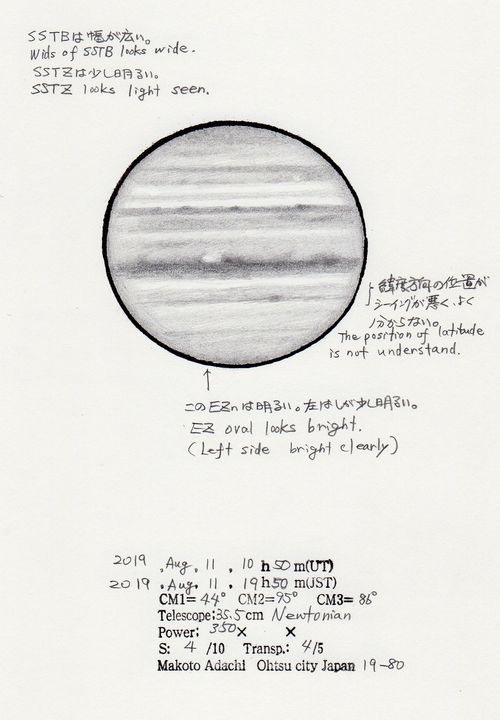 SSTBは幅が広い。
Wids of SSTB looks wide.
SSTZは少し明るい。
SSTZ looks light seen.
緯度方向の位置が
シーイングが悪く、よく
分からない。
The position of latitude
is not understand.
↑
このEZnは明るい。左はしが少し明るい。
EZ oval looks bright.
(Left side bright clearly)
2019 .Aug. 11 . 10 h 50 m(UT)
2019 .Aug. 11 . 19 h 50 m(JST)
CM1= 44° CM2= 95° CM3= 86°
Telescope;35.5cm Newtonian
Power; 350× ×
S: 4 /10 Transp.: 4/5
Makoto Adachi Ohtsu city Japan 19-80